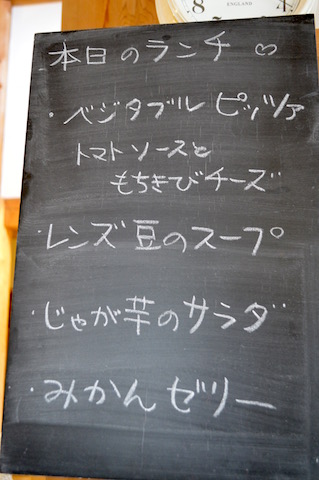 8
4
ENGLAND
本日のランチ ♡
・ベジタブル ピッツァ
トマトソースと
もちきびチーズ
・レンズ豆のスープ
・じゃが芋のサラダ
・みかんゼリー